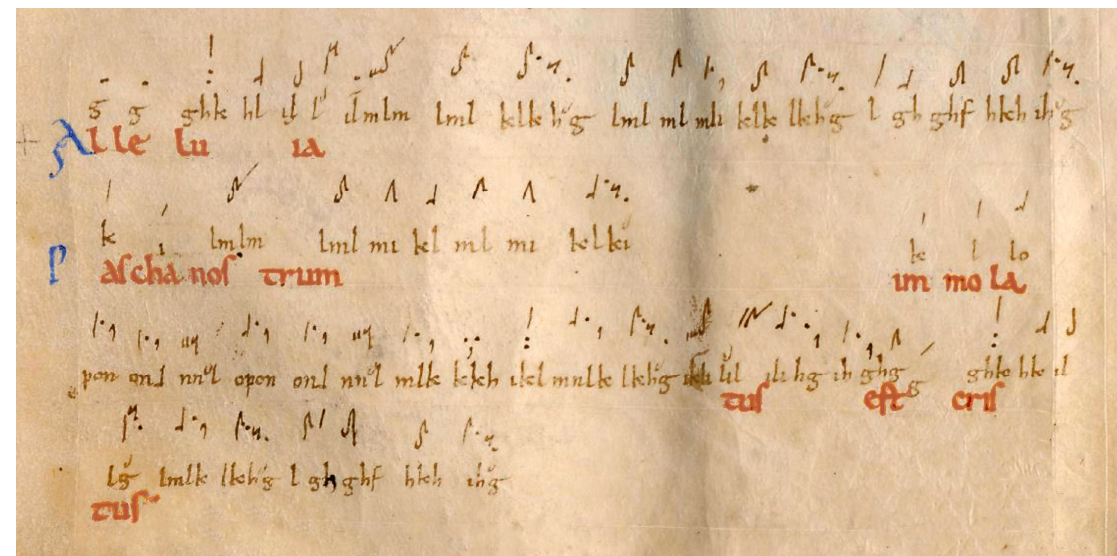 g g ghk hl il l ilmlm lml klk hg lml ml mli klk lkhg l gh ghf hkh ihg
Alle lu ia
k i lmlm lml mi kl ml mi klki k l lo
Paſcha noſ trum im mo la
pon onl nnl opon onl nnl mlk klkh ikl mnlk lkhg lil ili hg ih ghg g ghk hk il
tuſ eſt criſ
lg lmlk lkhg l gh ghf hkh ihg
tuſ